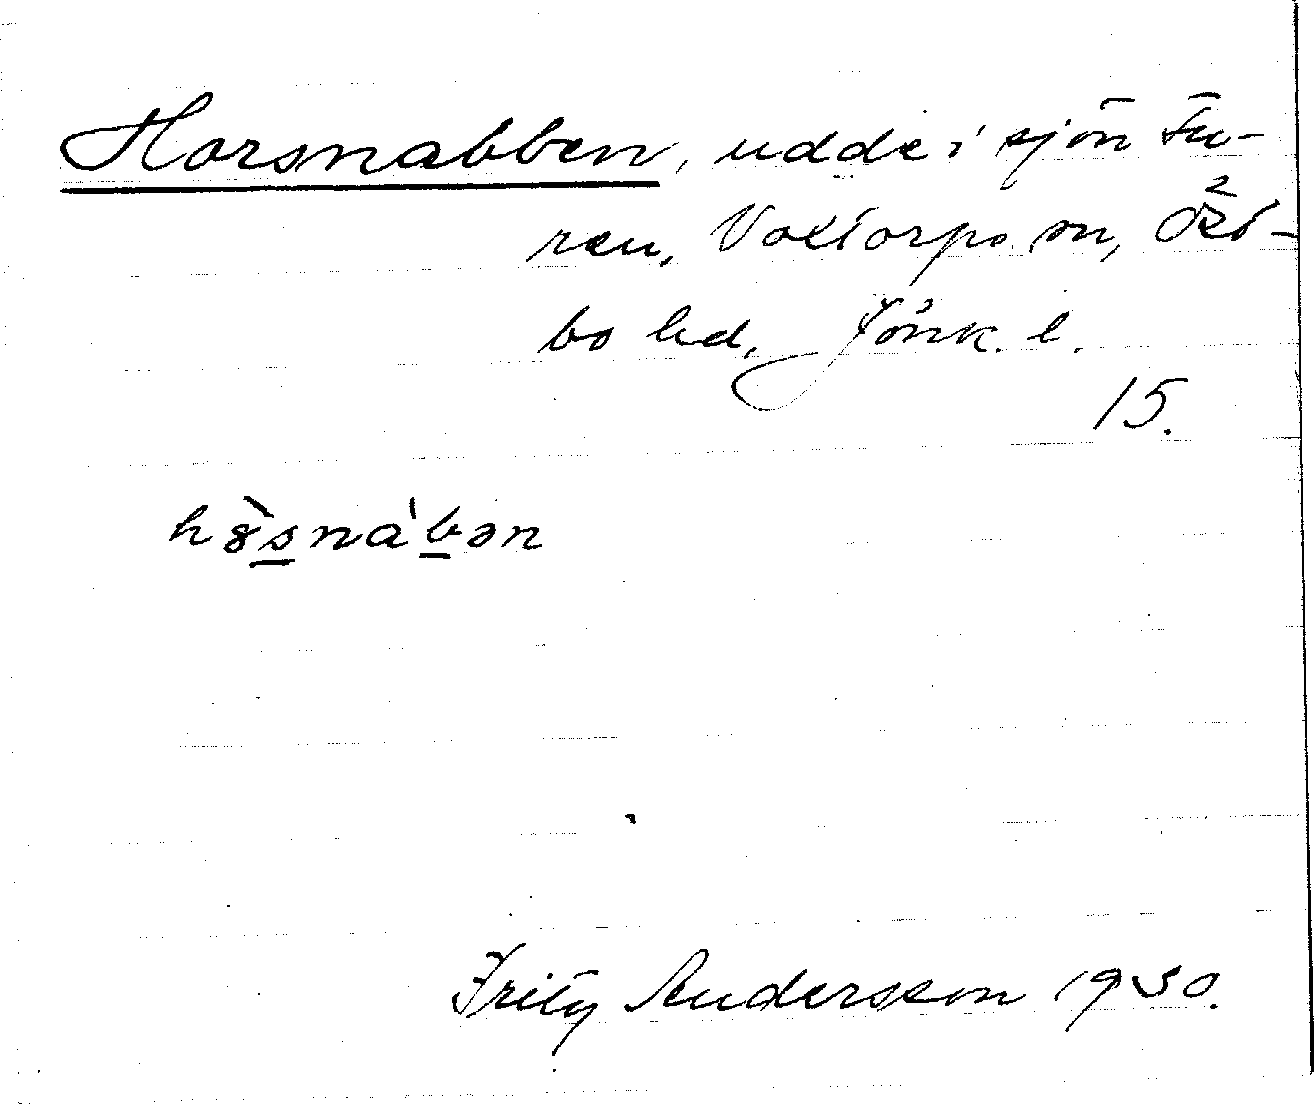 Horsnabben, udde i sjön Fu-
ren, Voxtorps sn, Öst-
bo hd, Jönk. l.
15.
hȣ̀snáb̲ən
Fritz Andersson 1930.